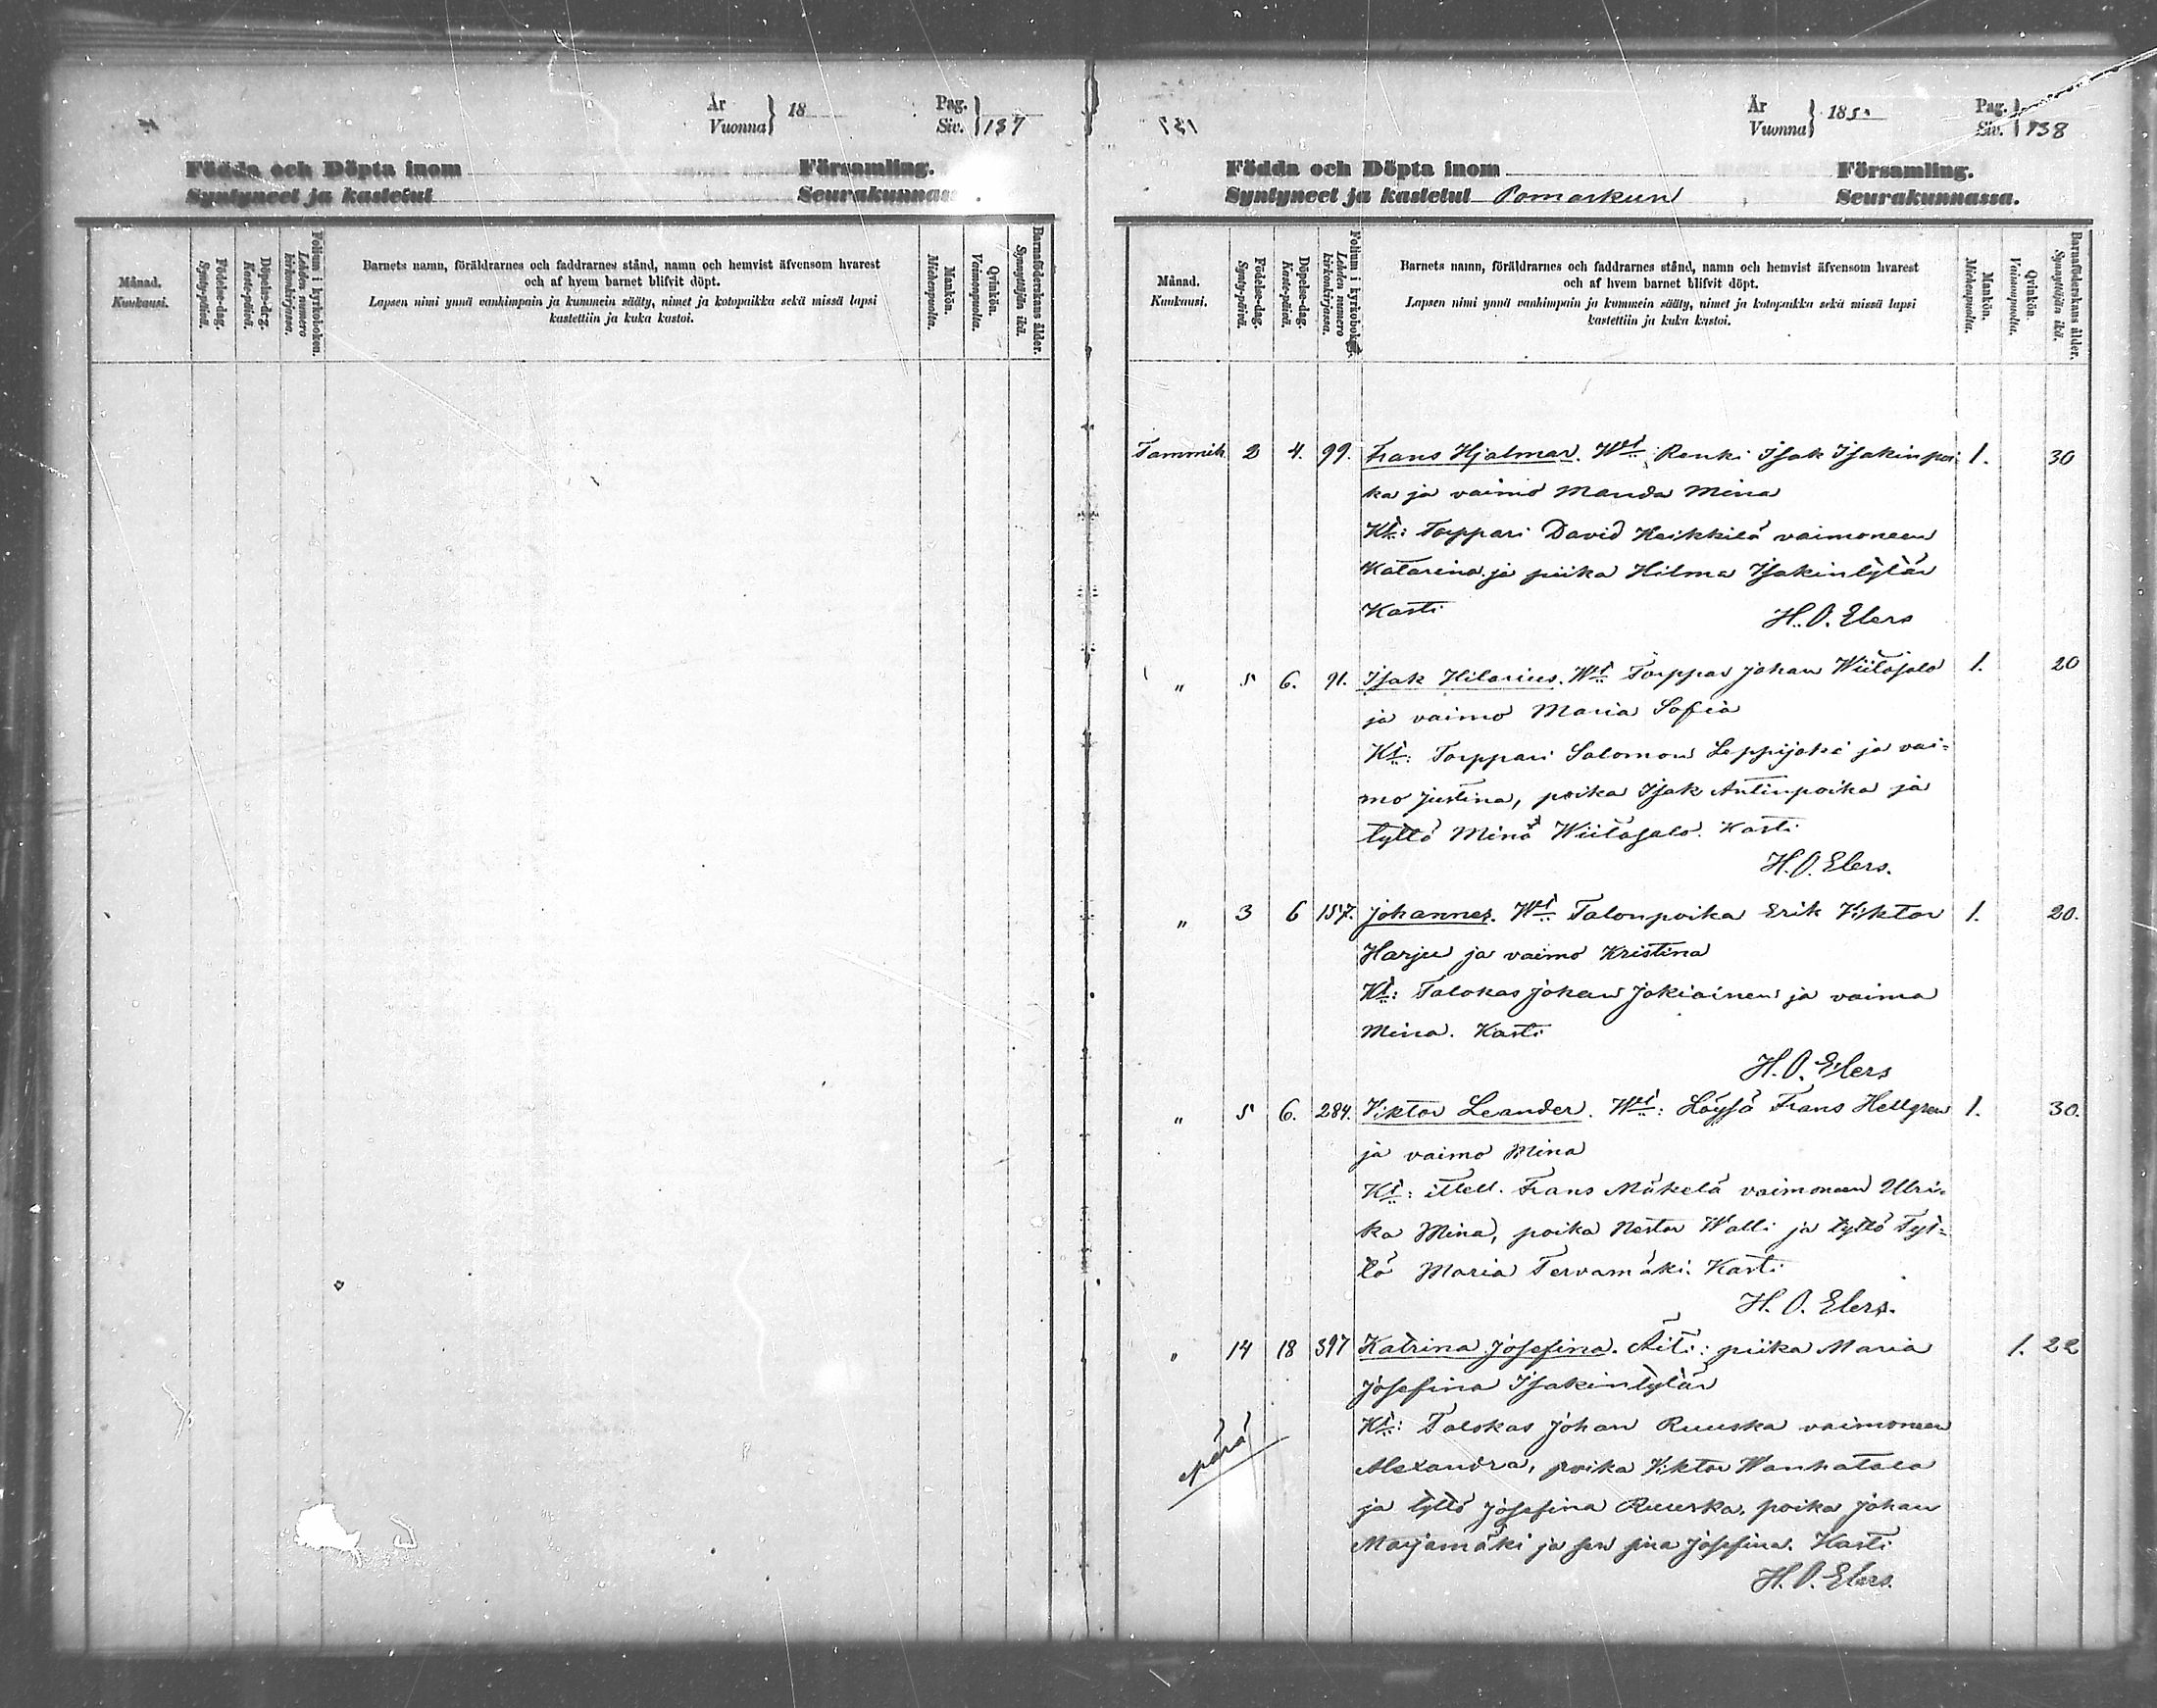 År
Vuonna } 18
Pag.
Siv. } 137
Födda och Döpta inom Församling.
Syntyneet ja kastetut Seurakunnas
Månad.
Kuukausi.
Födelse-dag.
Synty-päivä.
Döpelse-dag.
Kaste-päivä.
Folium i kyrkoboken.
Lehden numero
kirkonkirjassa.
Barnets namn, föräldrarnes och faddrarnes stånd, namn och hemvist äfvensom hvarest
och af hvem barnet blifvit döpt.
Lapsen nimi ynnä vanhimpain ja kummein sääty, nimet ja kotopaikka sekä missä lapsi
kastettiin ja kuka kastoi.
Mankön.
Miehenpuolta.
Qvinkön.
Vaimonpuolta.
Barnaföderskans ålder.
Synnyttäjän ikä.
137
År
Vuonna } 185
Pag.
Siv. } 138
Födda och Döpta inom Församling.
Syntyneet ja kastetut Pomarkun Seurakunnassa.
Månad.
Kuukausi.
Födelse-dag.
Synty-päivä.
Döpelse-dag.
Kaste-päivä.
Folium i kyrkoboken.
Lehden numero
kirkonkirjassa.
Barnets namn, föräldrarnes och faddrarnes stånd, namn och hemvist äfvensom hvarest
och af hvem barnet blifvit döpt.
Lapsen nimi ynnä vanhimpain ja kummein sääty, nimet ja kotopaikka sekä missä lapsi
kastettiin ja kuka kastoi.
Mankön.
Miehenpuolta.
Qvinkön.
Vaimonpuolta.
Barnaföderskans ålder.
Synnyttäjän ikä.
Tammik. 2 4. 99. Frans Hjalmar. Wt: Renki Isak Isakinpoi- 1. 30
ka ja vaimo Manda Mina
Kt: Torppari David Heikkilä vaimoneen
Katarina ja piika Hilma Isakintytär
Kasti H. O. Elers
" 5 6. 91. Isak Hilarius. Wt Torppar Johan Wiitasalo 1. 20
ja vaimo Maria Sofia
Kt: Torppari Salomon Leppijoki ja vai=
mo Justina, poika Isak Antinpoika ja
tyttö Mina Wiitasalo. Kasti
H. O. Elers.
" 3 6 157. Johannes. Wt Talonpoika Erik Viktor 1. 20.
Harju ja vaimo Kristina
Kt: Talokas Johan Jokiainen ja vaimo
Mina. Kasti
H. O. Elers
" 5 6. 284. Viktor Leander. Wt: Löysä Frans Hellgren 1. 30.
ja vaimo Mina
Kt: itsell. Frans Mäkelä vaimoneen Ulri=
ka Mina, poika Nestor Walli ja tyttö Tyt=
tö Maria Tervamäki. Kasti
H. O. Elers.
" 14 18 397 Katrina Josefina. Äiti: piika Maria 1. 22
Josefina Isakintytär
Kt: Talokas Johan Ruuska vaimoneen
äpärä
Alexandra, poika Viktor Wanhatalo
ja tyttö Josefina Ruuska, poika Johan
Marjamäki ja sen Josefina. Kasti
H. O. Elers.